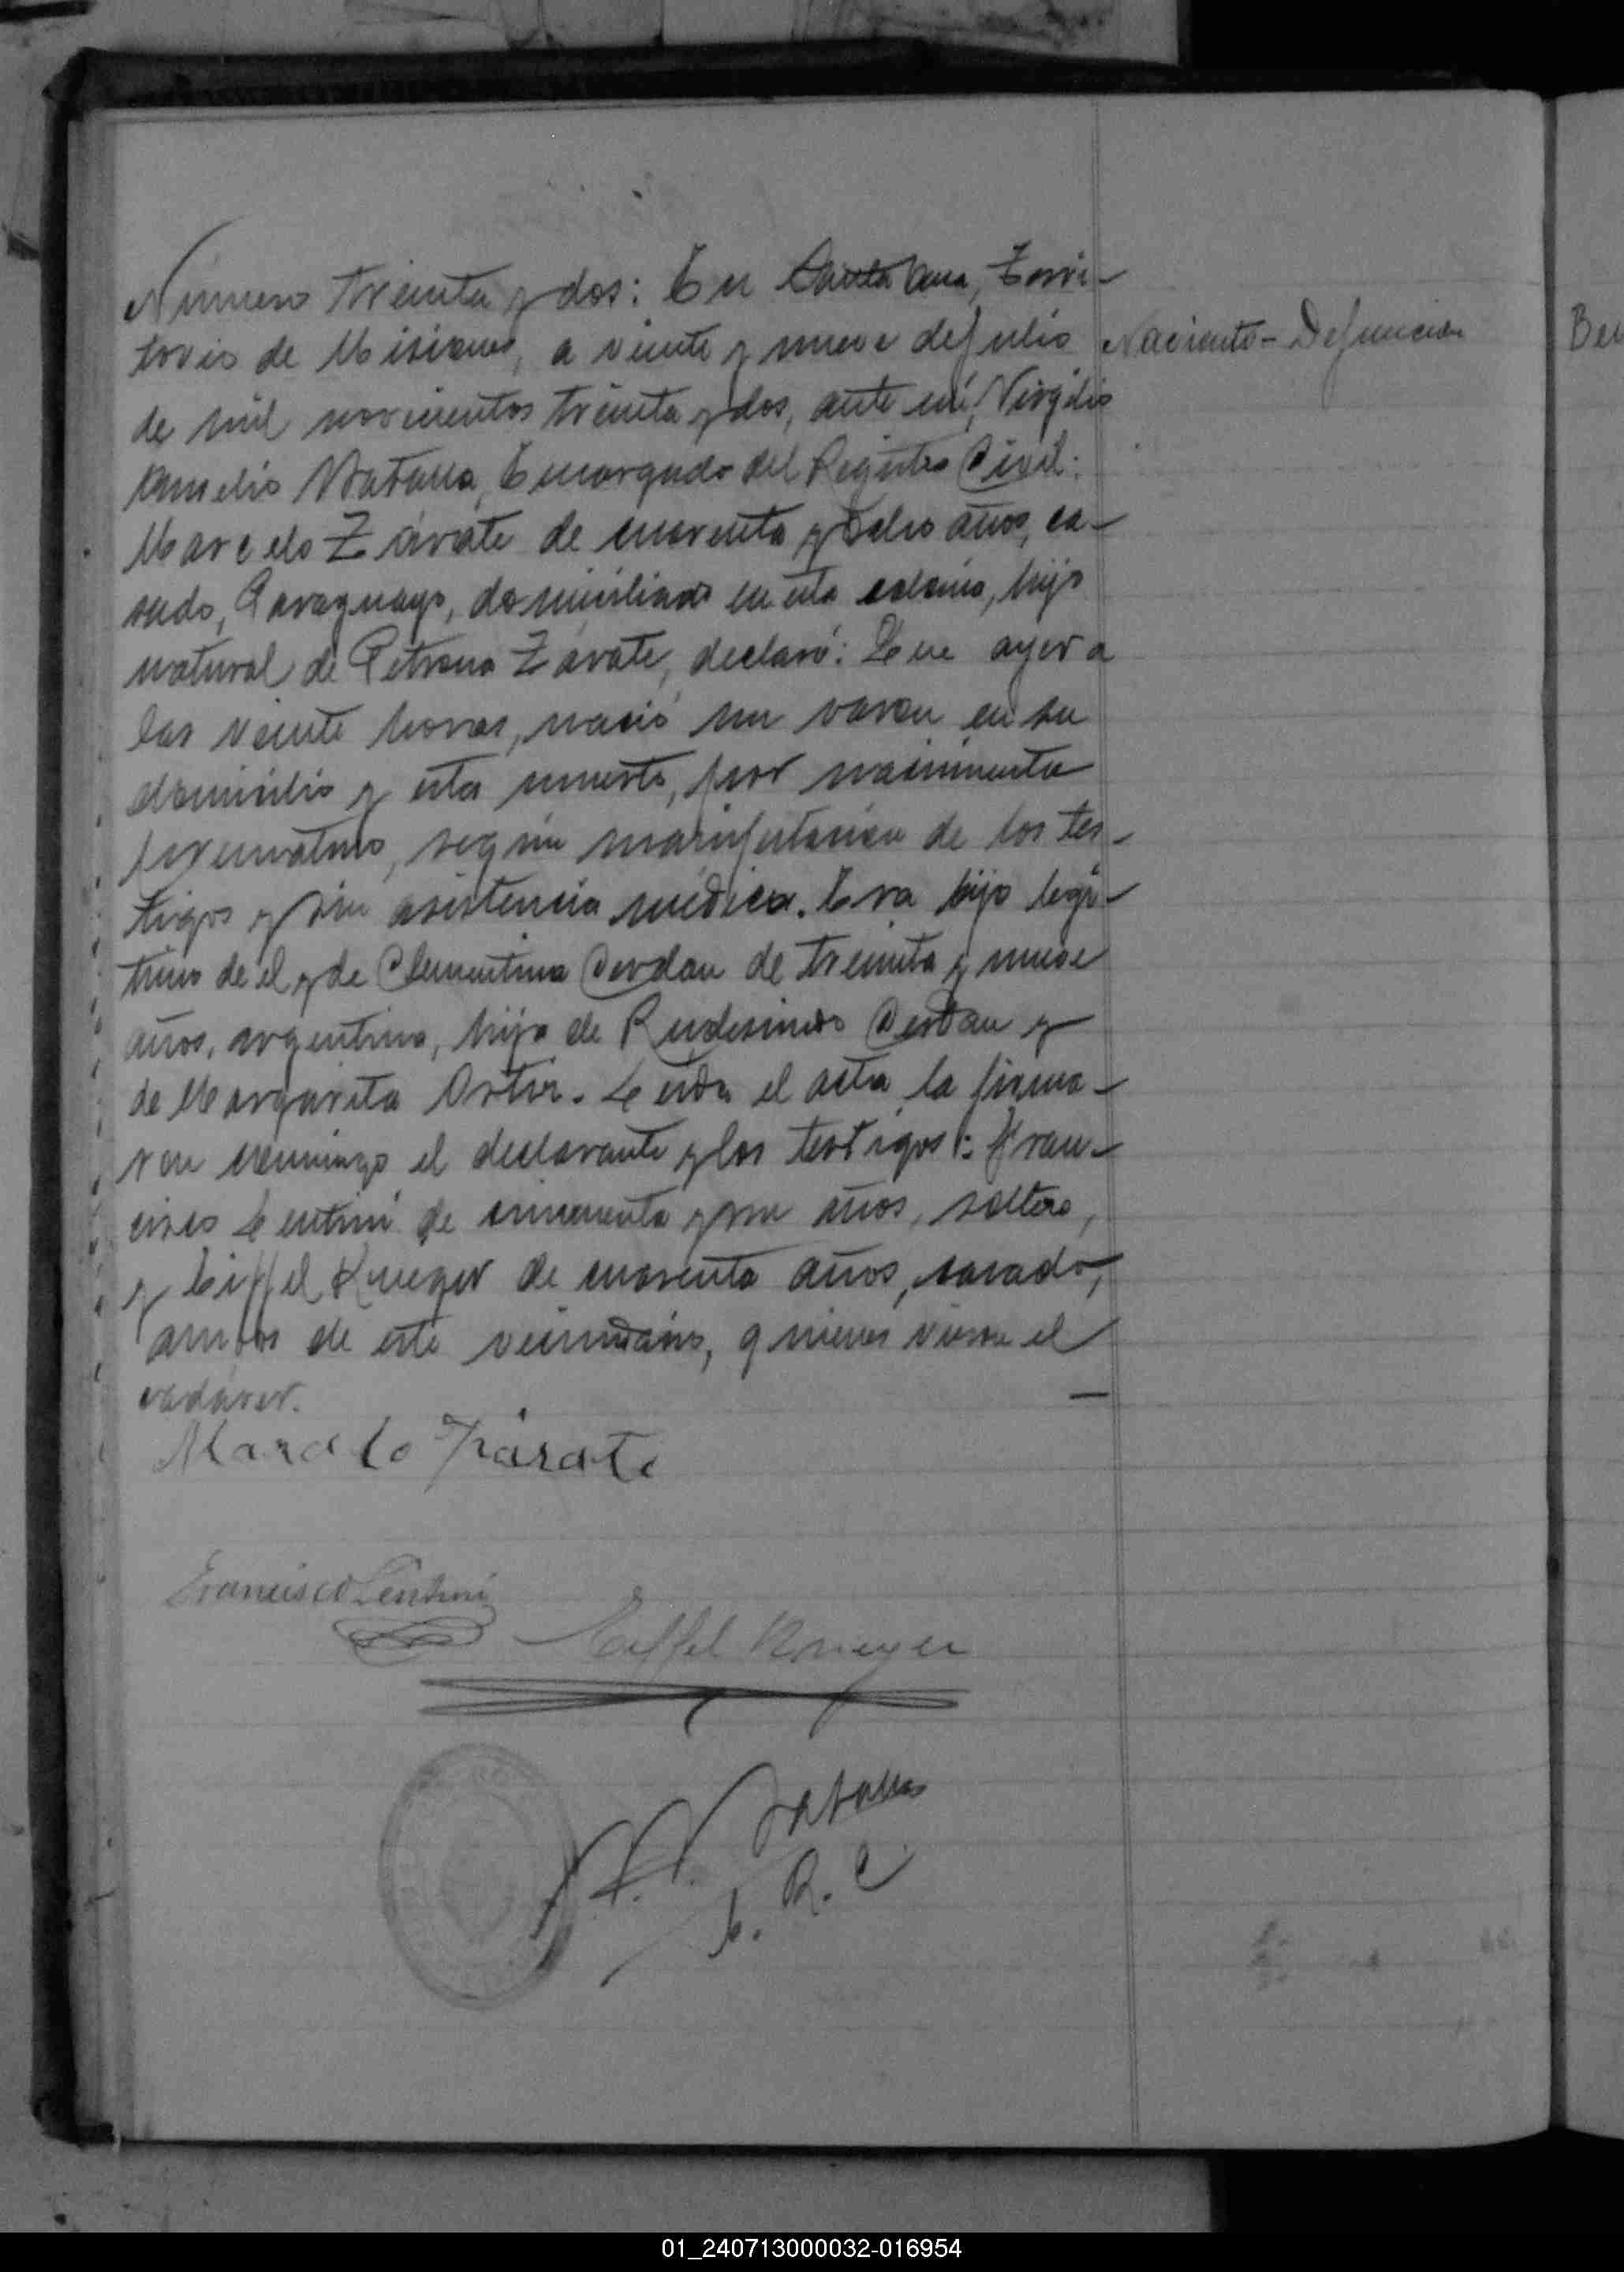 Número treinta y dos: En Santa Ana, Terri-
torio de Misiones, a veinte y nueve de Julio
Nacimiento - Defunción
de mil novecientos treinta y dos, ante mí, Virgilio
Amelio Encargado del Registro Civil:
Marcelo Zárate de cuarenta y ocho años, ca-
sado, Paraguayo, domiciliado en esta colonia, hijo
natural de Petrona Zárate, declaró: Que ayer a
las veinte horas, nació un varon en su
domicilio y esta muerto, por nacimiento
prematuro, según manifestación de los tes-
tigos y sin asistencia médica. Era hijo legí-
timo de el y de Clementina Cerdan de treinta y nueve
años, argentina, hija de Rudesindo Cerdan y
de Margarita Ortiz. Leida el acta, la firma-
ron conmigo el declarante y los testigos: Fran-
cisco Lentini de cincuenta y un años, soltero,
y Eiffel Krueger de cuarenta años, casado,
ambos de este vecindario, quienes vieron el
cadáver.
Marcelo Zárate
Francisco Lentini
Eiffel Krueger
E. R. C
01_240713000032-016954